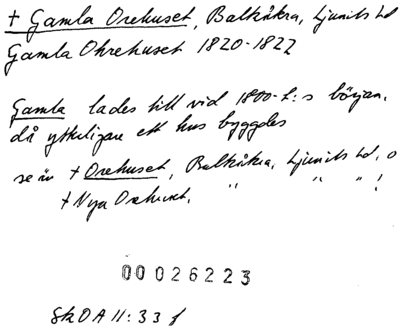 + Gamla Orehuset, Balkåkra, Ljunits hd
Gamla Ohrehuset 1820-1822
Gamla lades till vid 1800-t:s början,
då ytterligare ett hus byggdes
se även + Orehuset, Balkåkra, Ljunits hd, o
+ Nya Orehuset, " " " !
00026223
SkOA II: 33 f